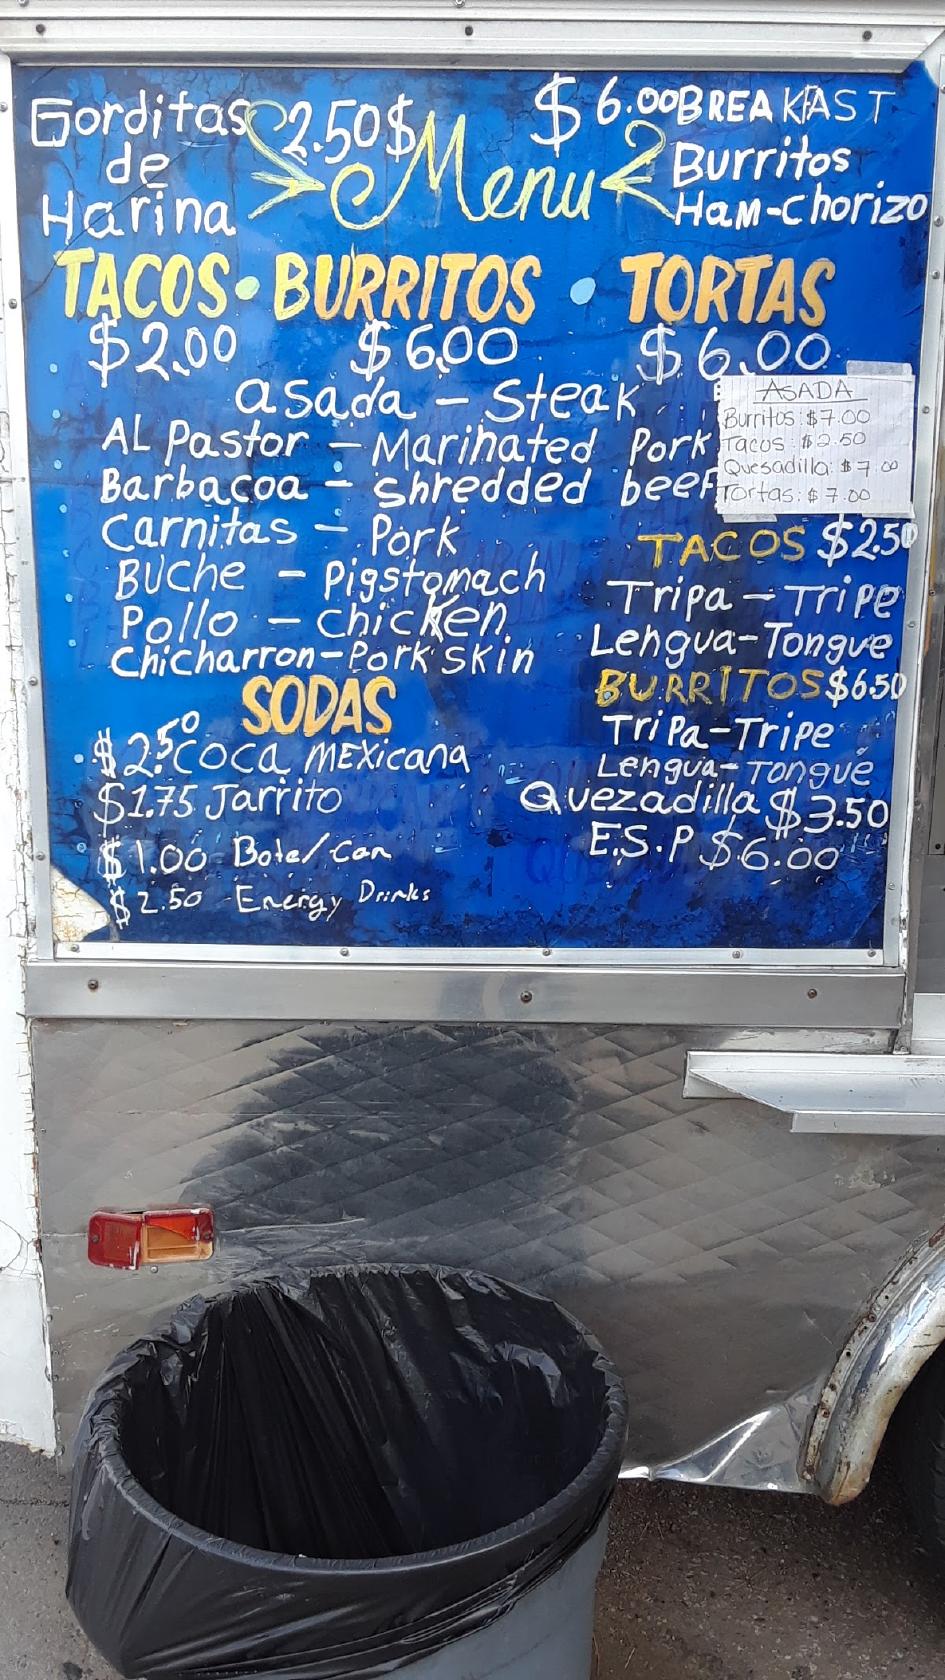 Gorditas 2.50$
de
Harina
Menu
$6.00 BREAKFAST
Burritos
HaM-Chorizo
TACOS • BURRITOS • TORTAS
$2.00 $6.00 $6.00
asada - Steak
AL Pastor - Marinated Pork
Barbacoa - Shredded beef
Carnitas - Pork
BUche - Pigstomach
Pollo - chicken
Chicharron-Pork skin
ASADA
Burritos: $7.00
Tacos: $2.50
Quesadilla: $7.00
Tortas: $7.00
TACOS $2.50
Tripa - Tripe
Lengua-Tongue
BURRITOS $6.50
Tripa-Tripe
Lengua-Tongue
Quezadilla $3.50
E.S.P $6.00
SODAS
$2.50 Coca MEXicana
$1.75 Jarrito
$1.00 Bote/can
$2.50 Energy Drinks